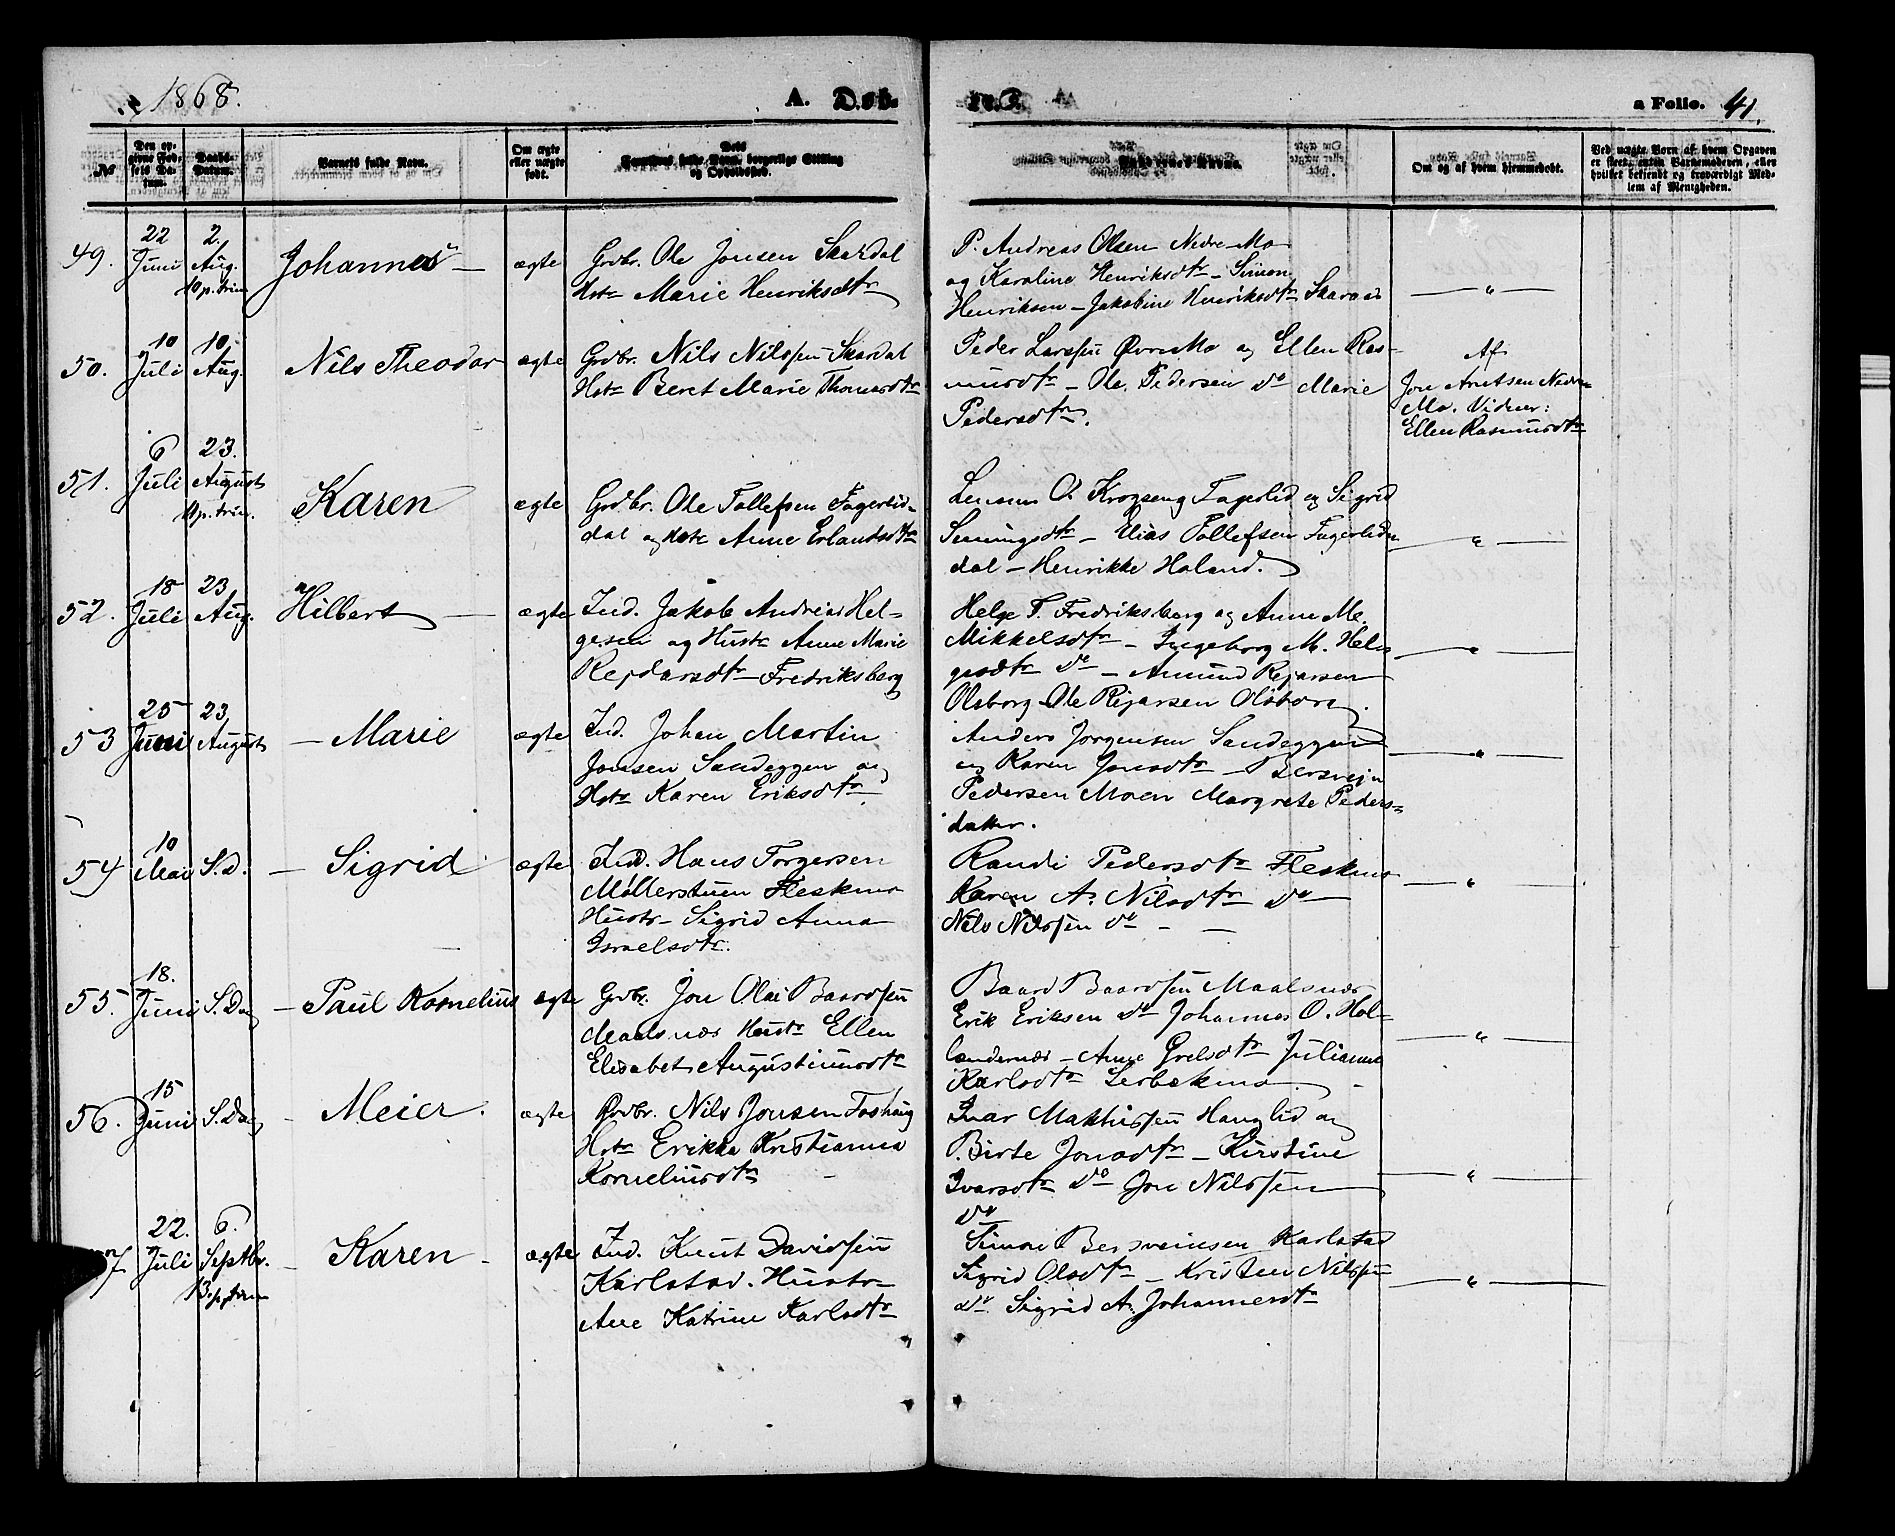 1868.
A. Døb-
te.
a Folio. 41.
№
Den op-
givne Fød-
sels Da-
tum.
Daabs-
Datum.
Barnets fulde Navn.
Om ægte
eller uægte
født.
Dets
Forældres fulde Navn, borgerlige Stilling
og Opholdssted.
Faddernes Navne.
Om og af hvem hjemmedøbt.
Ved uægte Børn af hvem Opgaven
er skeet, enten Barnemoderen, eller
hvilket bekjendt og troværdigt Med-
lem af Menigheden.
49.
22
Juni
2.
Aug.
10 p. trin
Johannes
ægte
Grdbr. Ole Jonsen Skardal
Hstr Marie Henriksdtr
P. Andreas Olsen Nedre-Mo
og Karoline Henriksdtr - Simon
Henriksen - Jakobine Henriksdtr
— " —
50.
10
Juli
10.
Aug.
Nils Theodor
ægte
Grdbr. Nils Nilssen Skardal
Hstr Beret Marie Thomasdtr
Peder Larssen Øvre Mo og Ellen Ras-
musdtr - Ole Pedersen do Marie
Pedersdtr.
Af
Jon Arntsen Nedre-
Mo. Vidner:
Ellen Rasmusdtr
51.
6
Juli
23.
August
11 p. trin.
Karen
ægte
Grdbr. Ole Tollefsen Fagerlid-
dal og Hstr Anne Erlandsdtr
O. Krogseng Fagerlid og Sigrid
- Elias Tollefsen Fagerlid-
dal - Henrikke Holand.
— " —
52.
18
Juli
23
Aug.
Hilbert
ægte
Ind. Jakob Andreas Hel-
gesen og Hustr Anne Marie
Rejdarsdtr Fredriksberg
Helge T. Fredriksberg og Anne M.
Mikkelsdtr - Ingeborg M. Hel-
gesdtr do - Amund Rejarsen
Olsborg Ole Rejarsen Olsborg
— " —
53
25
Juni
23
August
— Marie
ægte
Ind. Johan Martin
Jonsen Sandeggen og
Hstr Karen Eriksdtr
Anders Jørgensen Sandeggen
og Karen Jonsdtr - Bersvejn
Pedersen Moen Margrete Peders-
datter.
— " —
54
10
Mai
S.D.
— Sigrid
ægte
Ind. Hans Torgersen
Møllerstuen Fleskmo
Hustr - Sigrid Anna
Israelsdtr.
Randi Pedersdtr Fleskmo
Karen A. Nilsdtr do
Nils Nilssen do - -
— " —
55.
18.
Juni
S.Dag
— Paul Kornelius
ægte
Grdbr. Jon Olai Baardsen
Maalsnæs Hustr Ellen
Elisabet Augustinusdtr
Baard Baardsen Maalsnæs
Erik Eriksen do Johannes O. Hol-
lændernæs - Anne
Juliane
Karlsdtr Leirbekmo
— " —
56.
15
Juni
S.Dag
— Meier.
ægte
Grdbr. Nils Jonsen Foshaug
Hstr Erikka Kristianna
Korneliusdtr -
Ivar Mathissen Hauglid og
Birte Jonsdtr - Kirstine
Ivarsdtr do Jon Nilssen
do
— " —
57
22.
Juli
6.
Septbr.
13. p. trin
— Karen -
ægte
Ind. Knut Davidsen
Karlstad. Hustr
Ane Katrine Karlsdtr
Simon Bersveinsen Karlstad
Sigrid Olsdtr - Kristen Nilssen
do Sigrid A. Johannesdtr
— " —